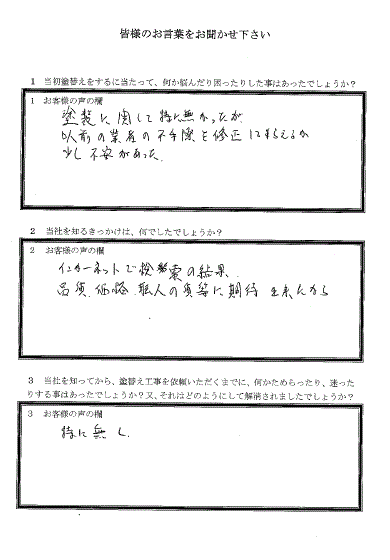 皆様のお言葉をお聞かせ下さい
1　当初塗替えをするに当たって、何か悩んだり困ったりした事はあったでしょうか？
1　お客様の声の欄
塗装に関して特に無かったが
以前の業者の不手際を修正してもらえるか
少し不安があった。
2　当社を知るきっかけは、何でしたでしょうか？
2　お客様の声の欄
インターネットで検索の結果
品質、価格、職人の質等に期待出来たから
3　当社を知ってから、塗替え工事を依頼いただくまでに、何かためらったり、迷った
りする事はあったでしょうか？又、それはどのようにして解消されましたでしょうか？
3　お客様の声の欄
特に無し